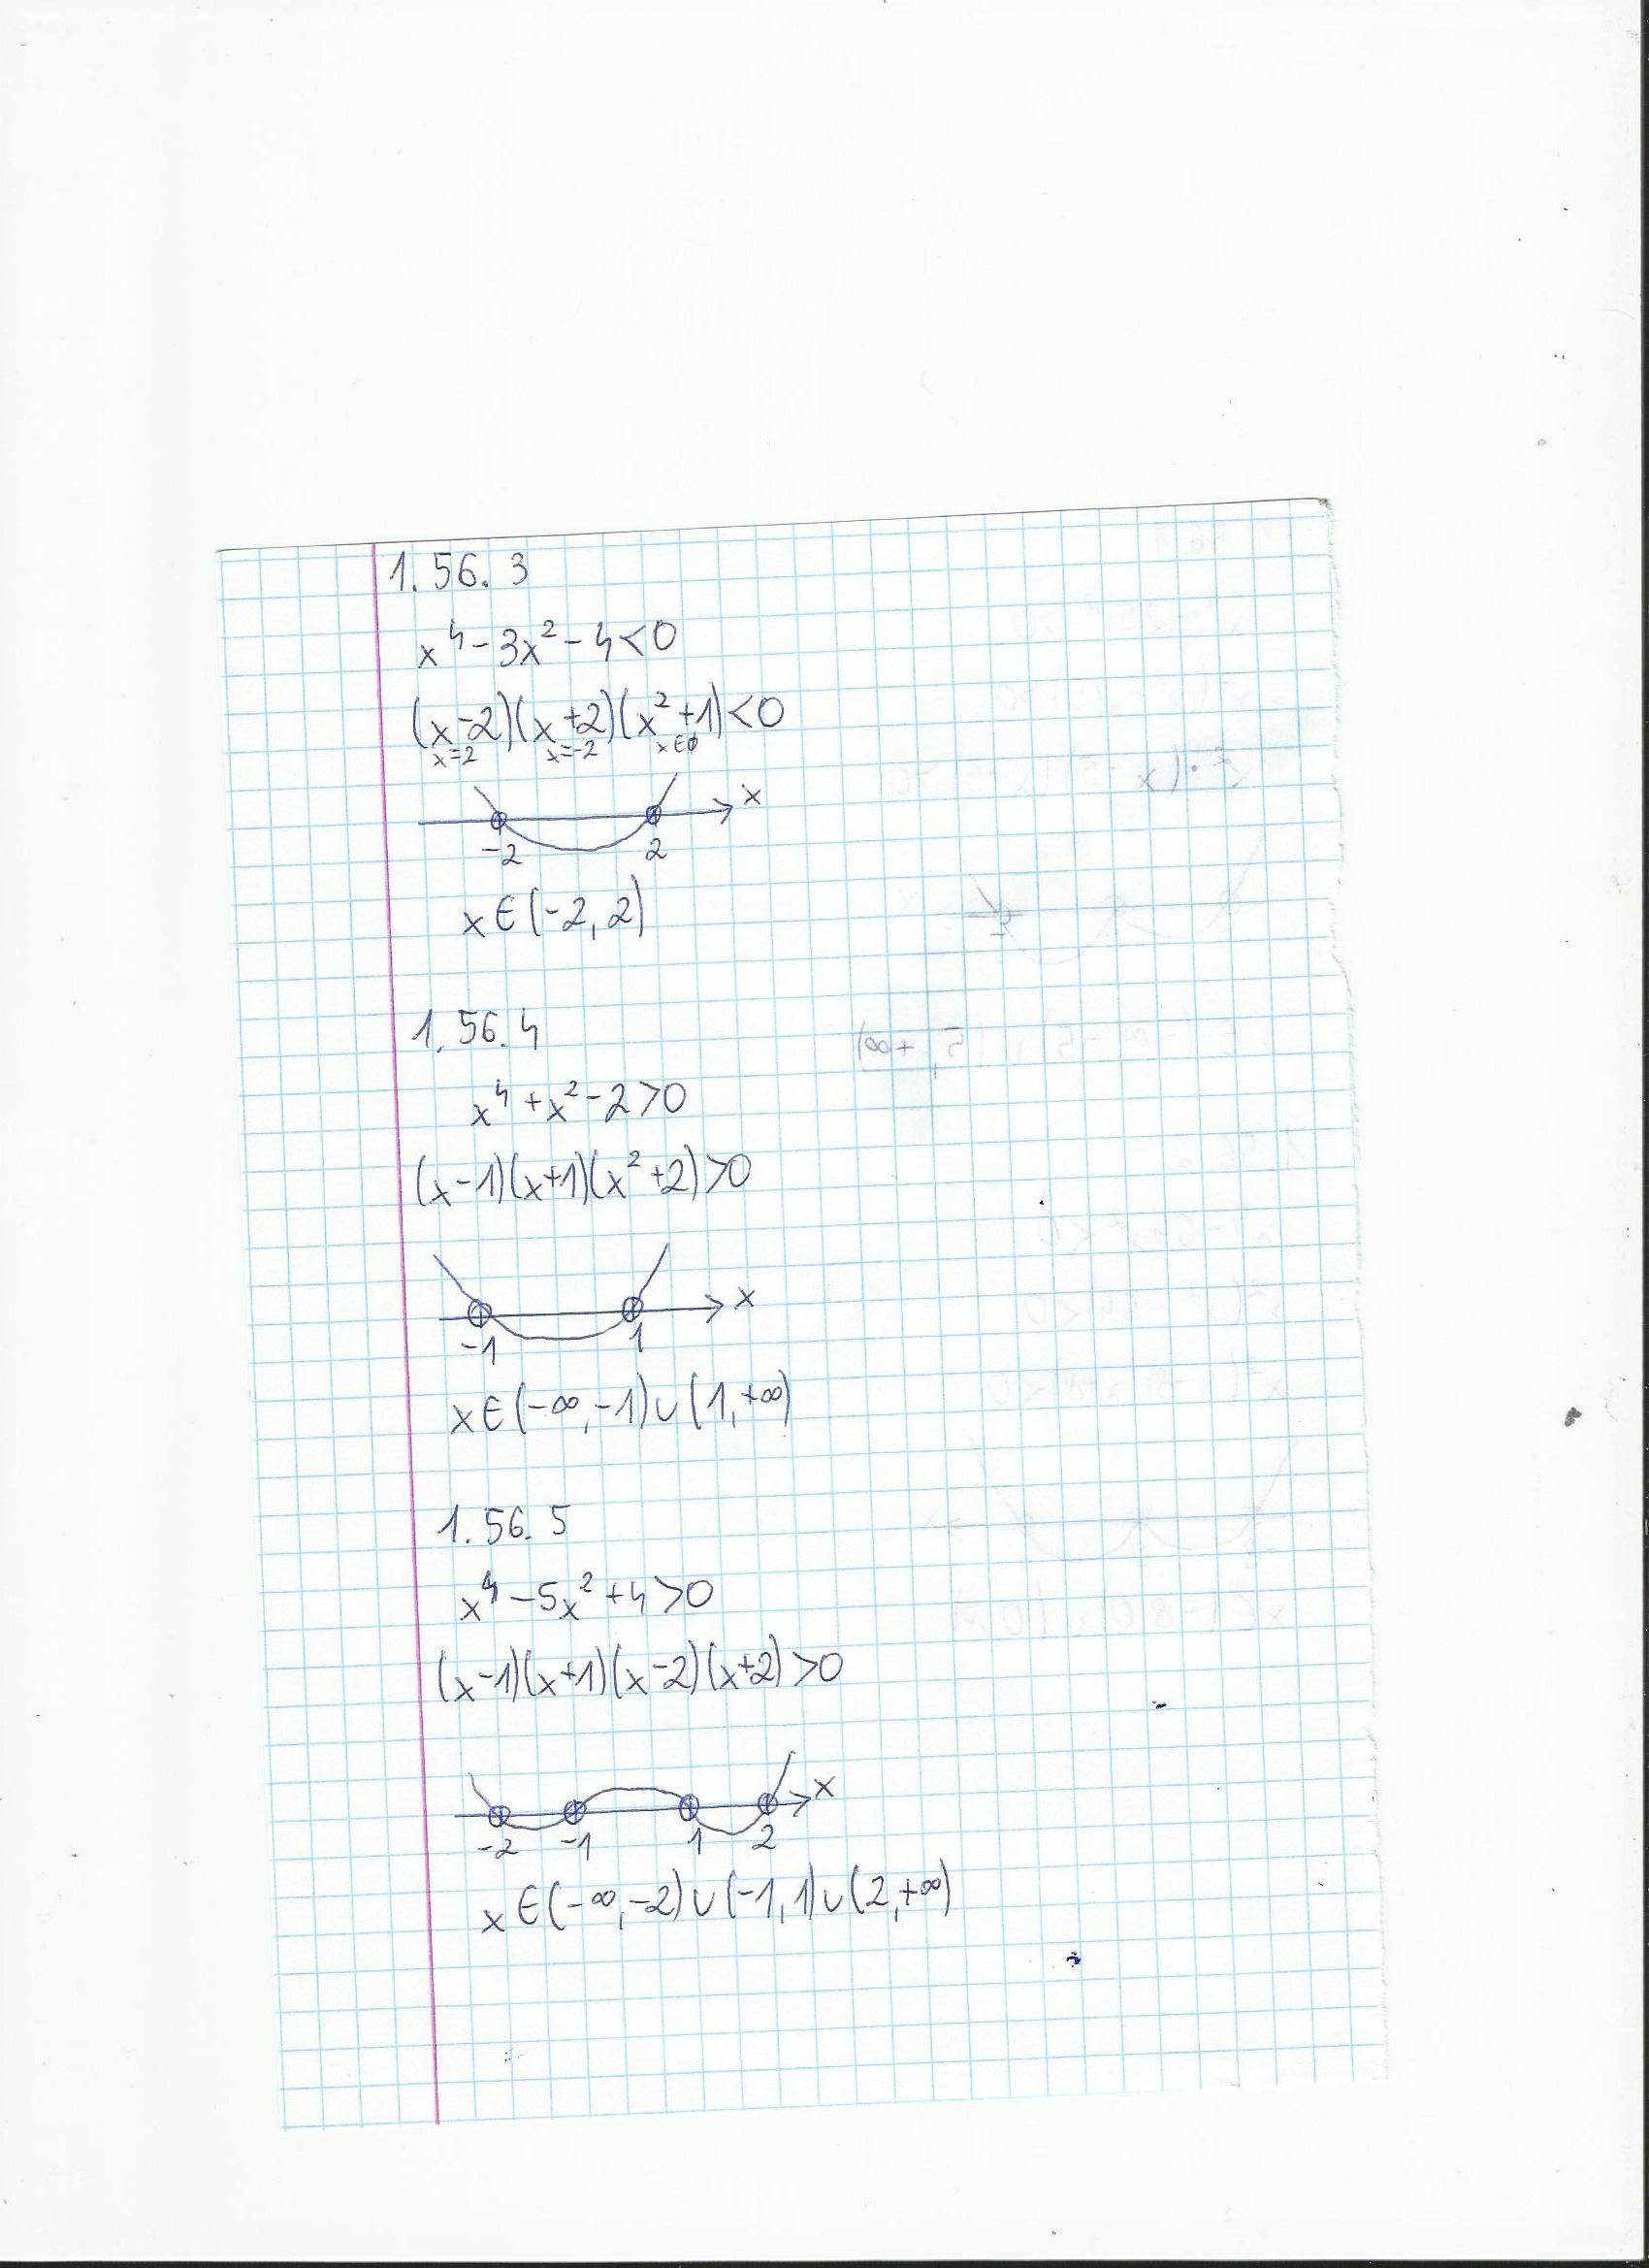 1.56.3
x⁴-3x²-4<0
(x-2)(x+2)(x²+1)<0
x=2 x=-2 x∈∅
x
-2 2
x∈(-2,2)
1.56.4
x⁴+x²-2>0
(x-1)(x+1)(x²+2)>0
x
-1 1
x∈(-∞,-1)∪(1,+∞)
1.56.5
x⁴-5x²+4>0
(x-1)(x+1)(x-2)(x+2)>0
x
-2 -1 1 2
x∈(-∞,-2)∪(-1,1)∪(2,+∞)